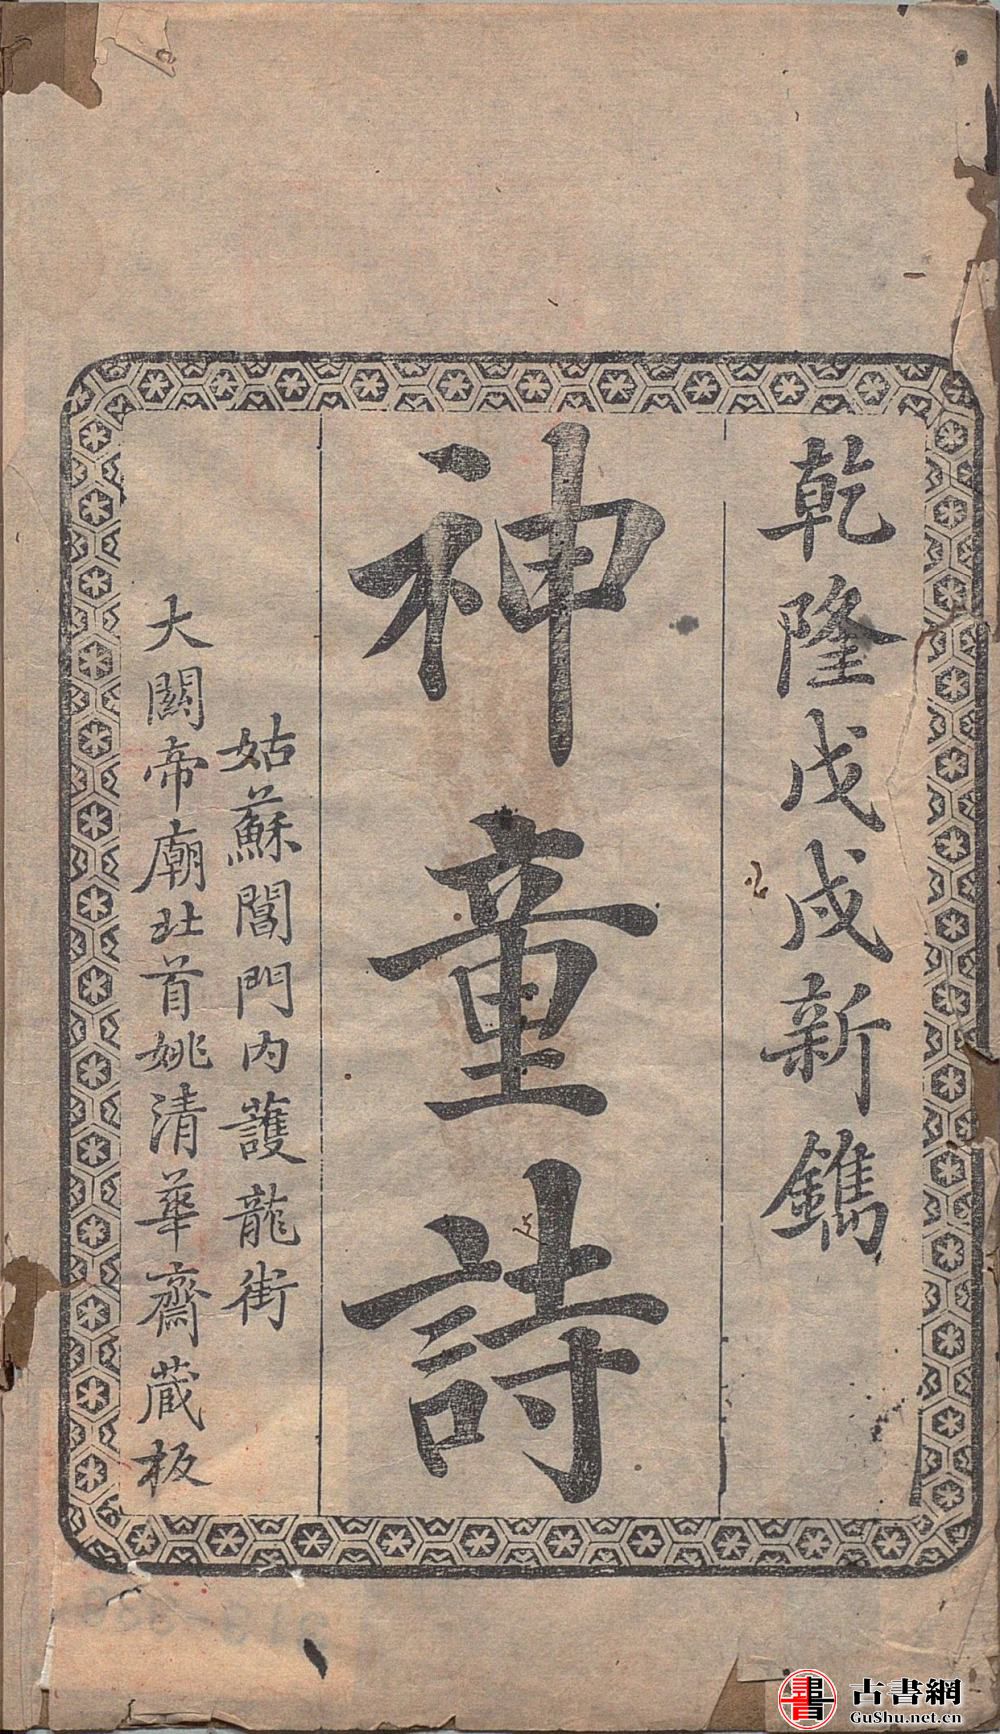 乾隆戊戌新鐫
神童詩
姑蘇閶門內護龍街
大關帝廟北首姚清華齋藏板
書
古書網
GuShu.net.cn